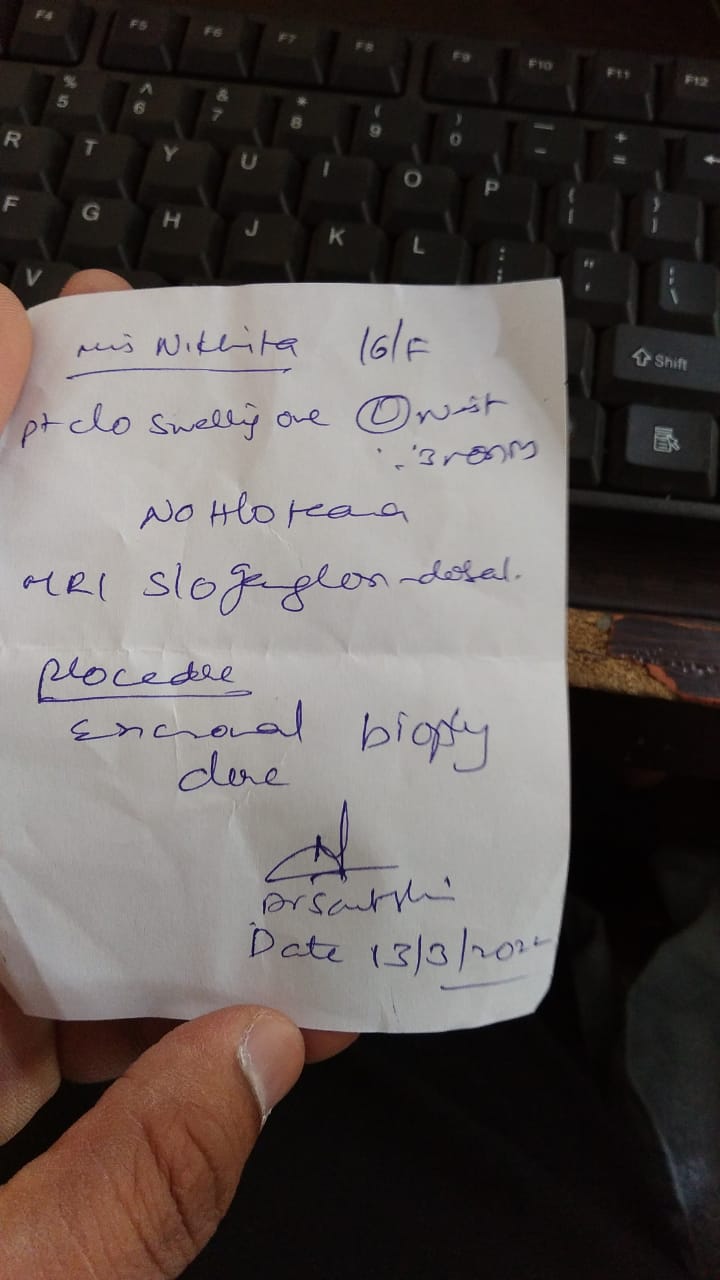 F4 F5 F6 F7 F8 F9 F10 F11 F12
% 5 ^ 6 & 7 * 8 ( 9 ) 0 — - + =
R T Y U I O P { [ } ]
F G H J K L : ; " ' | \
V
Shift
Mis Nikhita 16/F
pt c/o Swellig ove (L) wrist
∵ 3
No H/o
MRI S/o Ganglon - dosal.
Procedre
Excisonal biopsy
done
Date 13/3/2022